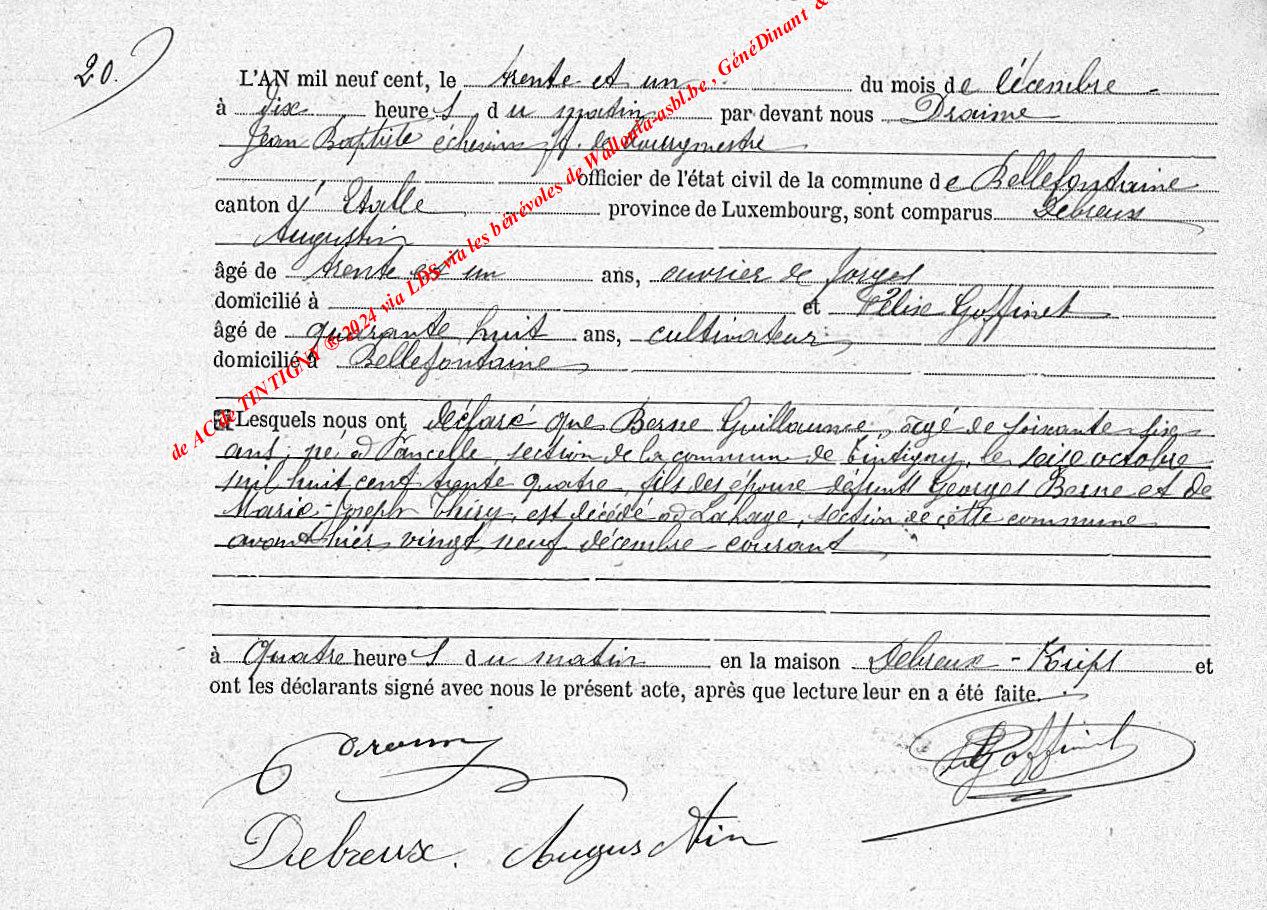 20.
L'AN mil neuf cent, le trente et un du mois de décembre
à dix heures du matin par devant nous Draime
Jean Baptiste échevin ff. de bourgmestre
officier de l'état civil de la commune de Bellefontaine
canton d'Etalle province de Luxembourg, sont comparus Debreux
Augustin
âgé de trente et un ans, ouvrier de forges
domicilié à et Félix Goffinet
âgé de quarante huit ans, cultivateur
domicilié à Bellefontaine
Lesquels nous ont déclaré que Berne Guillaume, âgé de soixante six
ans, né à Lancelle, section de la commun de Tintigny, le seize octobre
mil huit cent trente quatre, fils des époux défunts Georges Berne et de
Marie-Joseph Thiry, est décédé à Lahage, section de cette commune
avant hier vingt neuf décembre courant
à quatre heures du matin en la maison Debreux - et
ont les déclarants signé avec nous le présent acte, après que lecture leur en a été faite.
Goffinet
Debreux. Augustin
de AC de TINTIGNY ® 2024 via LDS via les bénévoles de Wallonia-asbl.be, GénéDinant &